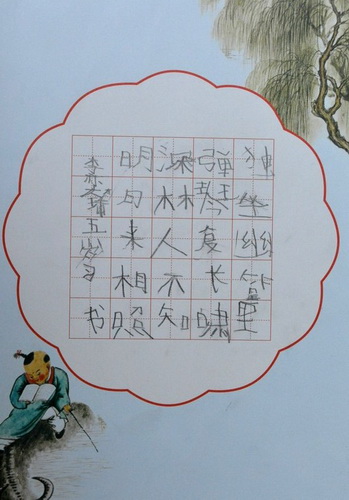 独坐幽篁里
弹琴复长啸
深林人不知
明句来相照
李 五岁 书